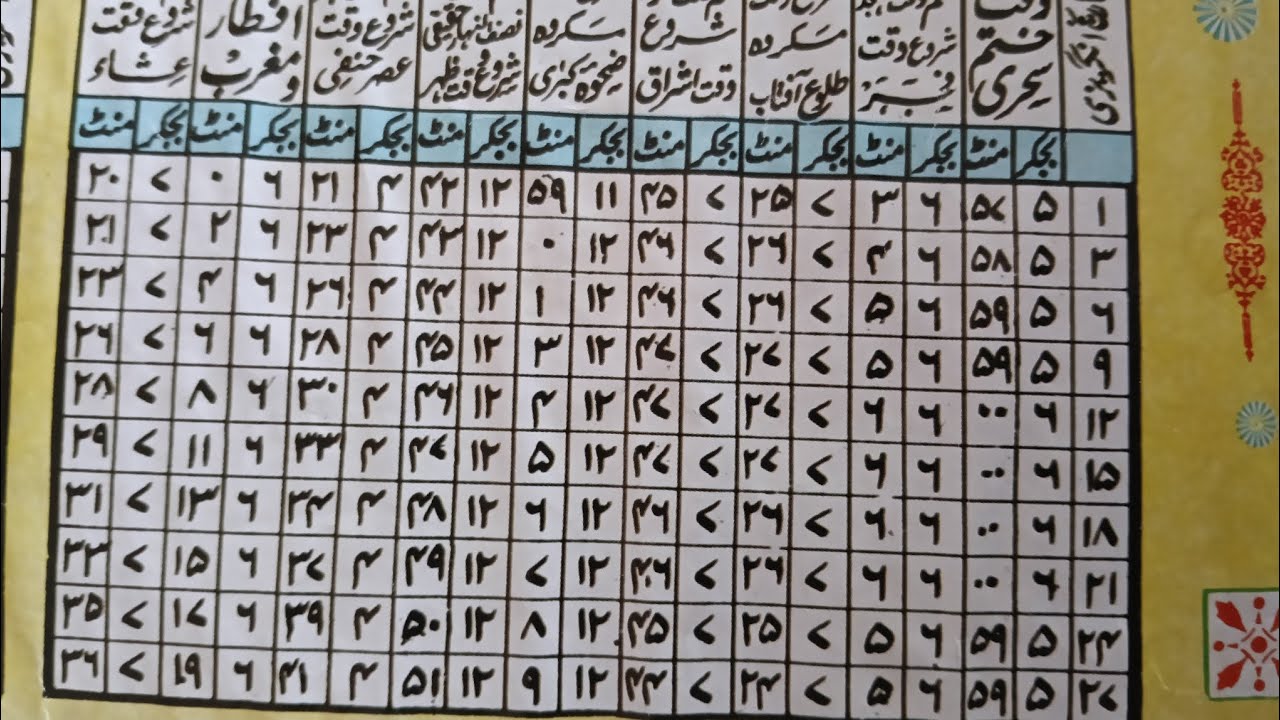 انگریزی
وقت
ختم
سحری
شروع وقت
فجر
مکروہ
طلوع آفتاب
شروع
وقت اشراق
مکروہ
ضحوہ کبریٰ
نصف النہار حقیقی
و شروع وقت ظہر
شروع وقت
عصر حنفی
افطار
و مغرب
شروع وقت
عشاء
بجکر منٹ بجکر منٹ بجکر منٹ بجکر منٹ بجکر منٹ بجکر منٹ بجکر منٹ بجکر منٹ بجکر منٹ
۱ ۵ ۵۷ ۶ ۳ ۷ ۲۵ ۷ ۴۵ ۱۱ ۵۹ ۱۲ ۴۲ ۴ ۲۱ ۶ ۰ ۷ ۲۰
۳ ۵ ۵۸ ۶ ۴ ۷ ۲۶ ۷ ۴۶ ۱۲ ۰ ۱۲ ۴۳ ۴ ۲۳ ۶ ۲ ۷ ۲۱
۶ ۵ ۵۹ ۶ ۵ ۷ ۲۶ ۷ ۴۶ ۱۲ ۱ ۱۲ ۴۴ ۴ ۲۶ ۶ ۴ ۷ ۲۳
۹ ۵ ۵۹ ۶ ۵ ۷ ۲۷ ۷ ۴۷ ۱۲ ۳ ۱۲ ۴۵ ۴ ۲۸ ۶ ۶ ۷ ۲۶
۱۲ ۶ ۰۰ ۶ ۶ ۷ ۲۷ ۷ ۴۷ ۱۲ ۴ ۱۲ ۴۶ ۴ ۳۰ ۶ ۸ ۷ ۲۸
۱۵ ۶ ۰۰ ۶ ۶ ۷ ۲۷ ۷ ۴۷ ۱۲ ۵ ۱۲ ۴۷ ۴ ۳۳ ۶ ۱۱ ۷ ۲۹
۱۸ ۶ ۰۰ ۶ ۶ ۷ ۲۶ ۷ ۴۶ ۱۲ ۶ ۱۲ ۴۸ ۴ ۳۴ ۶ ۱۳ ۷ ۳۱
۲۱ ۶ ۰۰ ۶ ۶ ۷ ۲۶ ۷ ۴۶ ۱۲ ۷ ۱۲ ۴۹ ۴ ۳۷ ۶ ۱۵ ۷ ۳۳
۲۴ ۵ ۵۹ ۶ ۵ ۷ ۲۵ ۷ ۴۵ ۱۲ ۸ ۱۲ ۵۰ ۴ ۳۹ ۶ ۱۷ ۷ ۳۵
۲۷ ۵ ۵۹ ۶ ۵ ۷ ۲۴ ۷ ۴۴ ۱۲ ۹ ۱۲ ۵۱ ۴ ۴۱ ۶ ۱۹ ۷ ۳۶